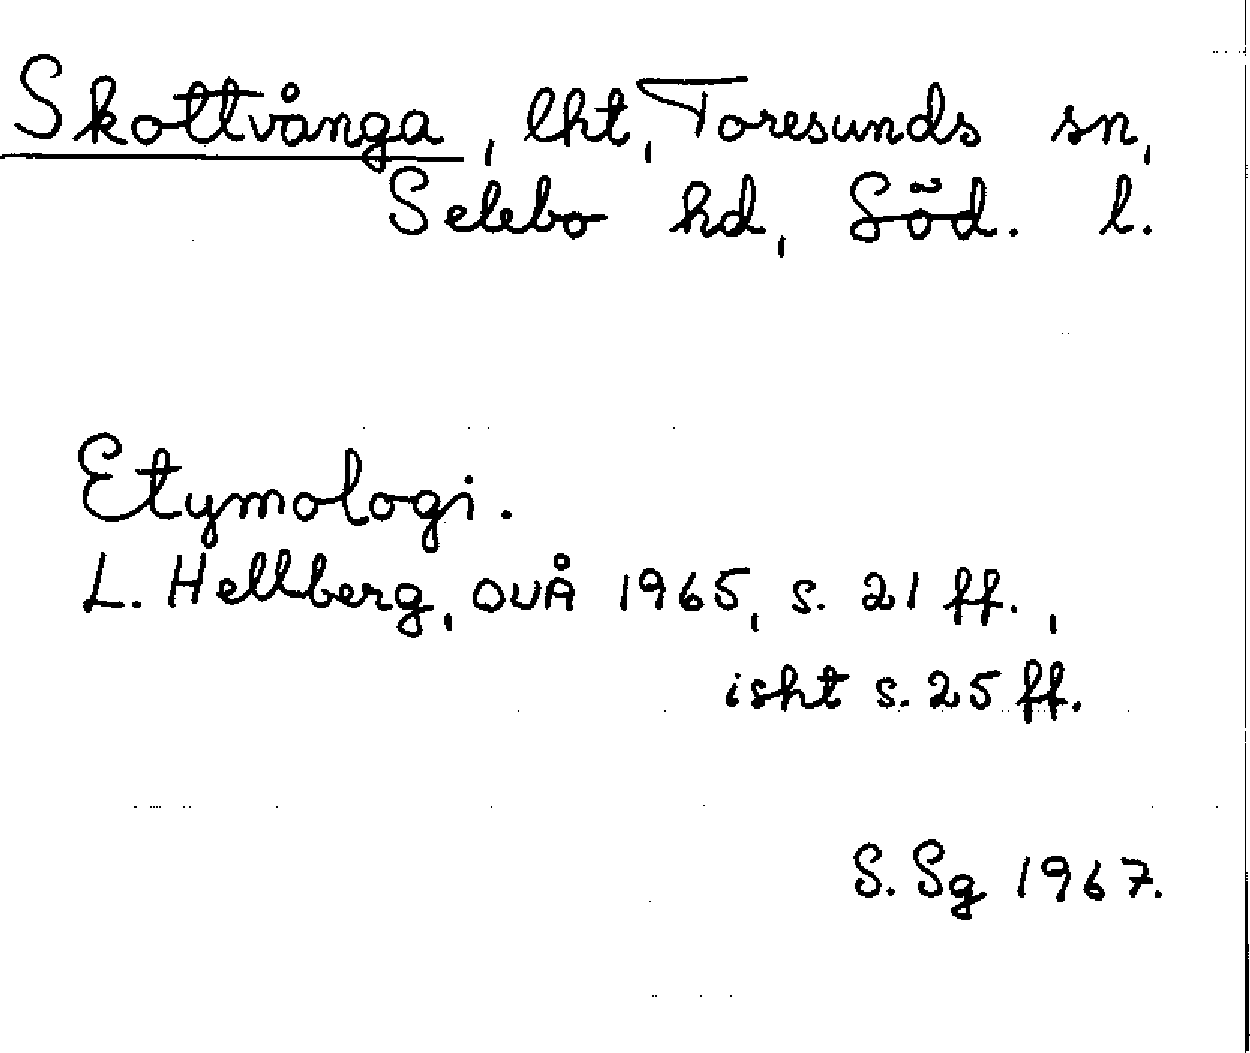 Skottvånga, lht, Toresunds sn,
Selebo hd, Söd. l.
Etymologi.
L. Hellberg, OUÅ 1965, s. 21 ff.,
isht s. 25 ff.
S. Sg 1967.